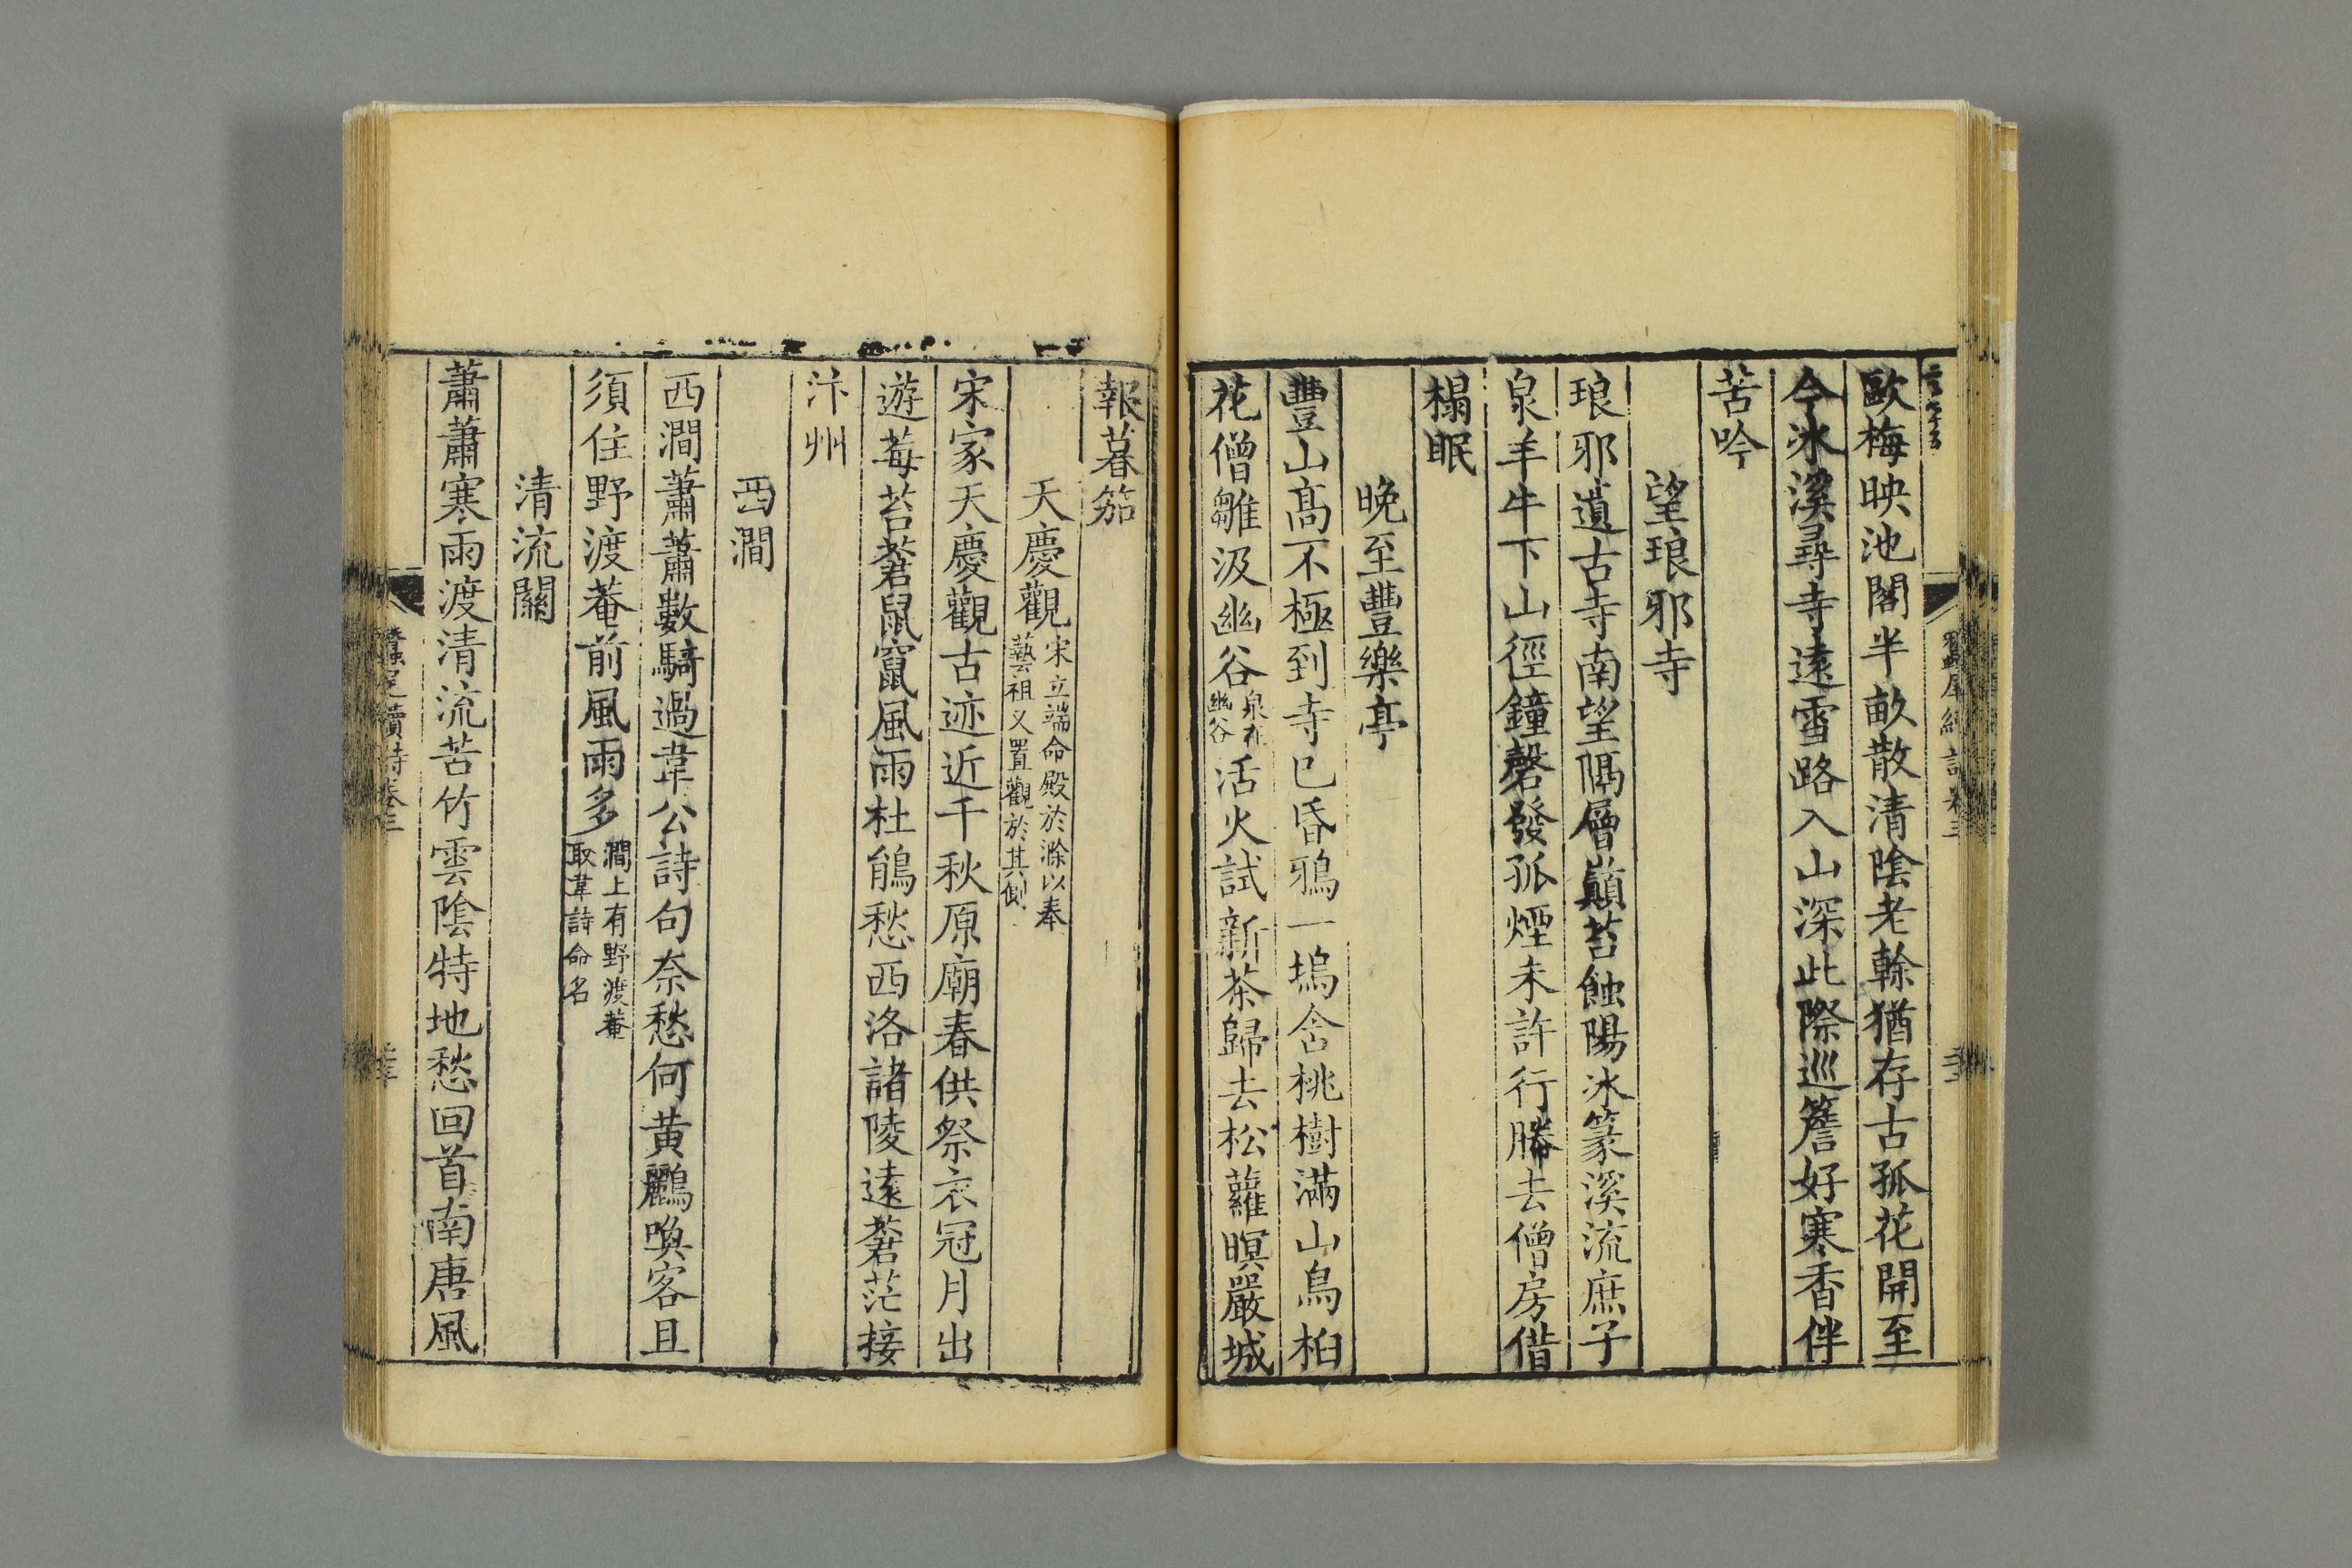 歐梅映池閣半畝散清陰老榦猶存古孤花開至
今冰溪尋寺遠雪路入山深此際巡簷好寒香伴
苦吟
望琅邪寺
琅邪遺古寺南望隔層巔苔蝕陽冰篆溪流庶子
泉羊牛下山徑鐘磬發孤煙未許行縢去僧房借
榻眠
晚至豐樂亭
豐山高不極到寺已昏鴉一塢含桃樹滿山烏桕
花僧雛汲幽谷泉在幽谷活火試新茶歸去松蘿暝嚴城
報暮笳
天慶觀宋立端命殿於滁以奉藝祖又置觀於其側
宋家天慶觀古迹近千秋原廟春供祭衣冠月出
遊莓苔蒼鼠竄風雨杜鵑愁西洛諸陵遠蒼茫接
汴州
西澗
西澗蕭蕭數騎過韋公詩句奈愁何黃鸝喚客且
須住野渡菴前風雨多澗上有野渡菴取韋詩命名
清流關
蕭蕭寒雨渡清流苦竹雲陰特地愁回首南唐風
蠶尾續詩卷三